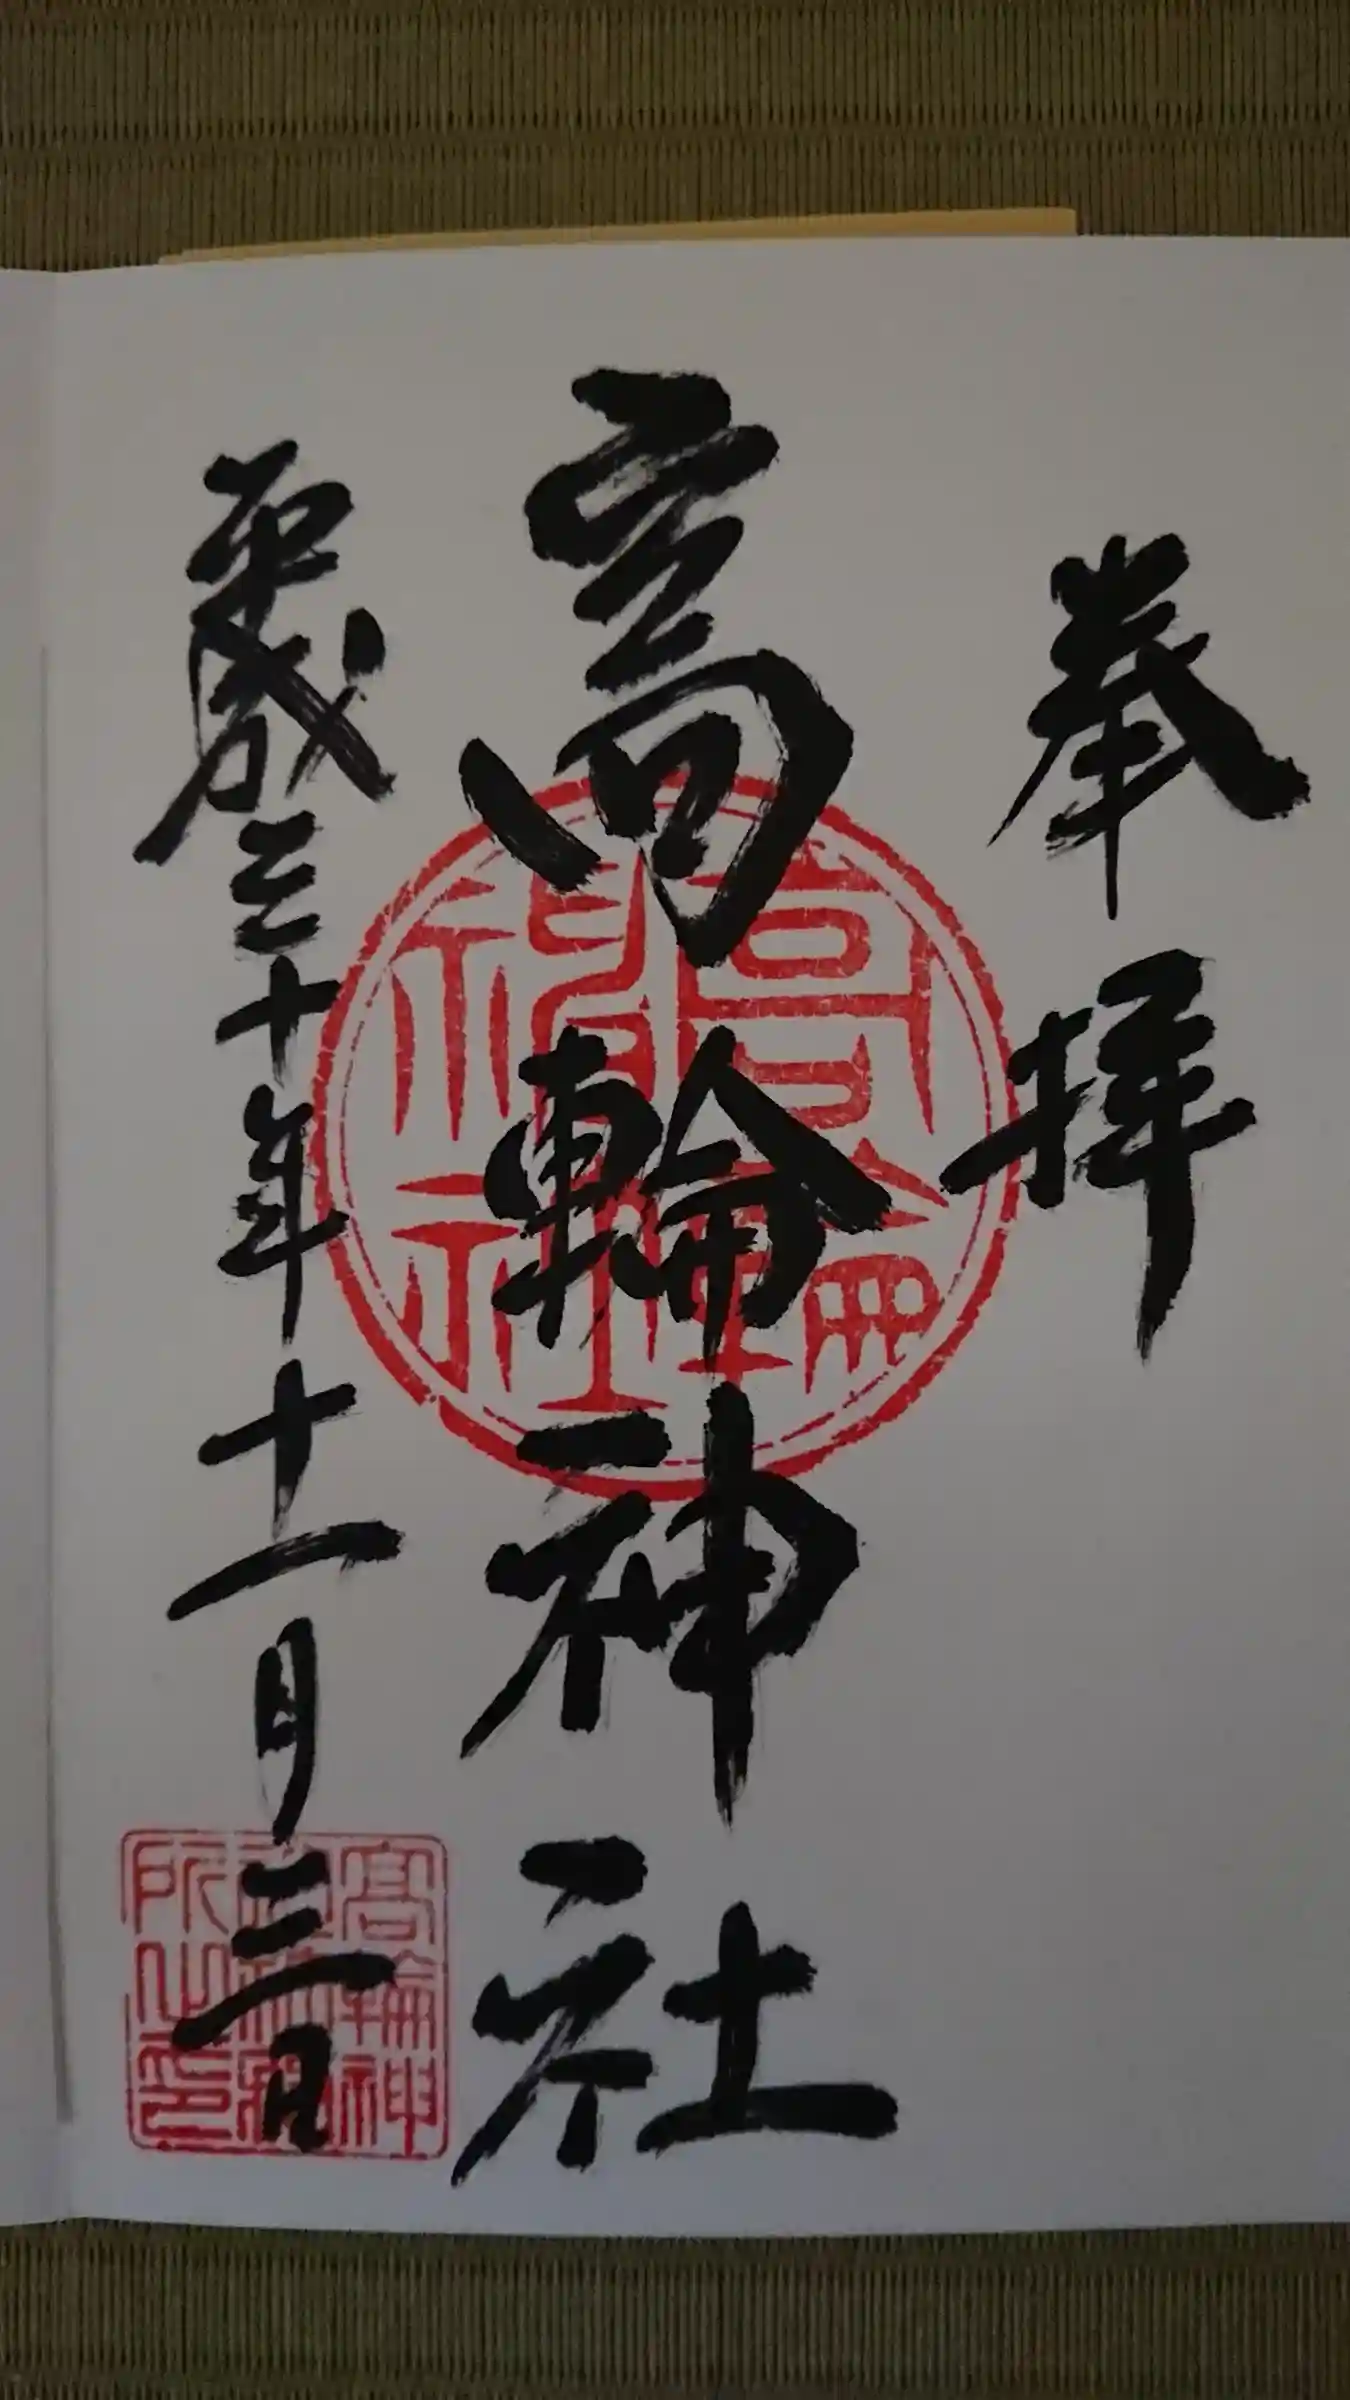 奉拝
高輪神社
平成三十年十一月三日
高輪神社
高輪神
所之印